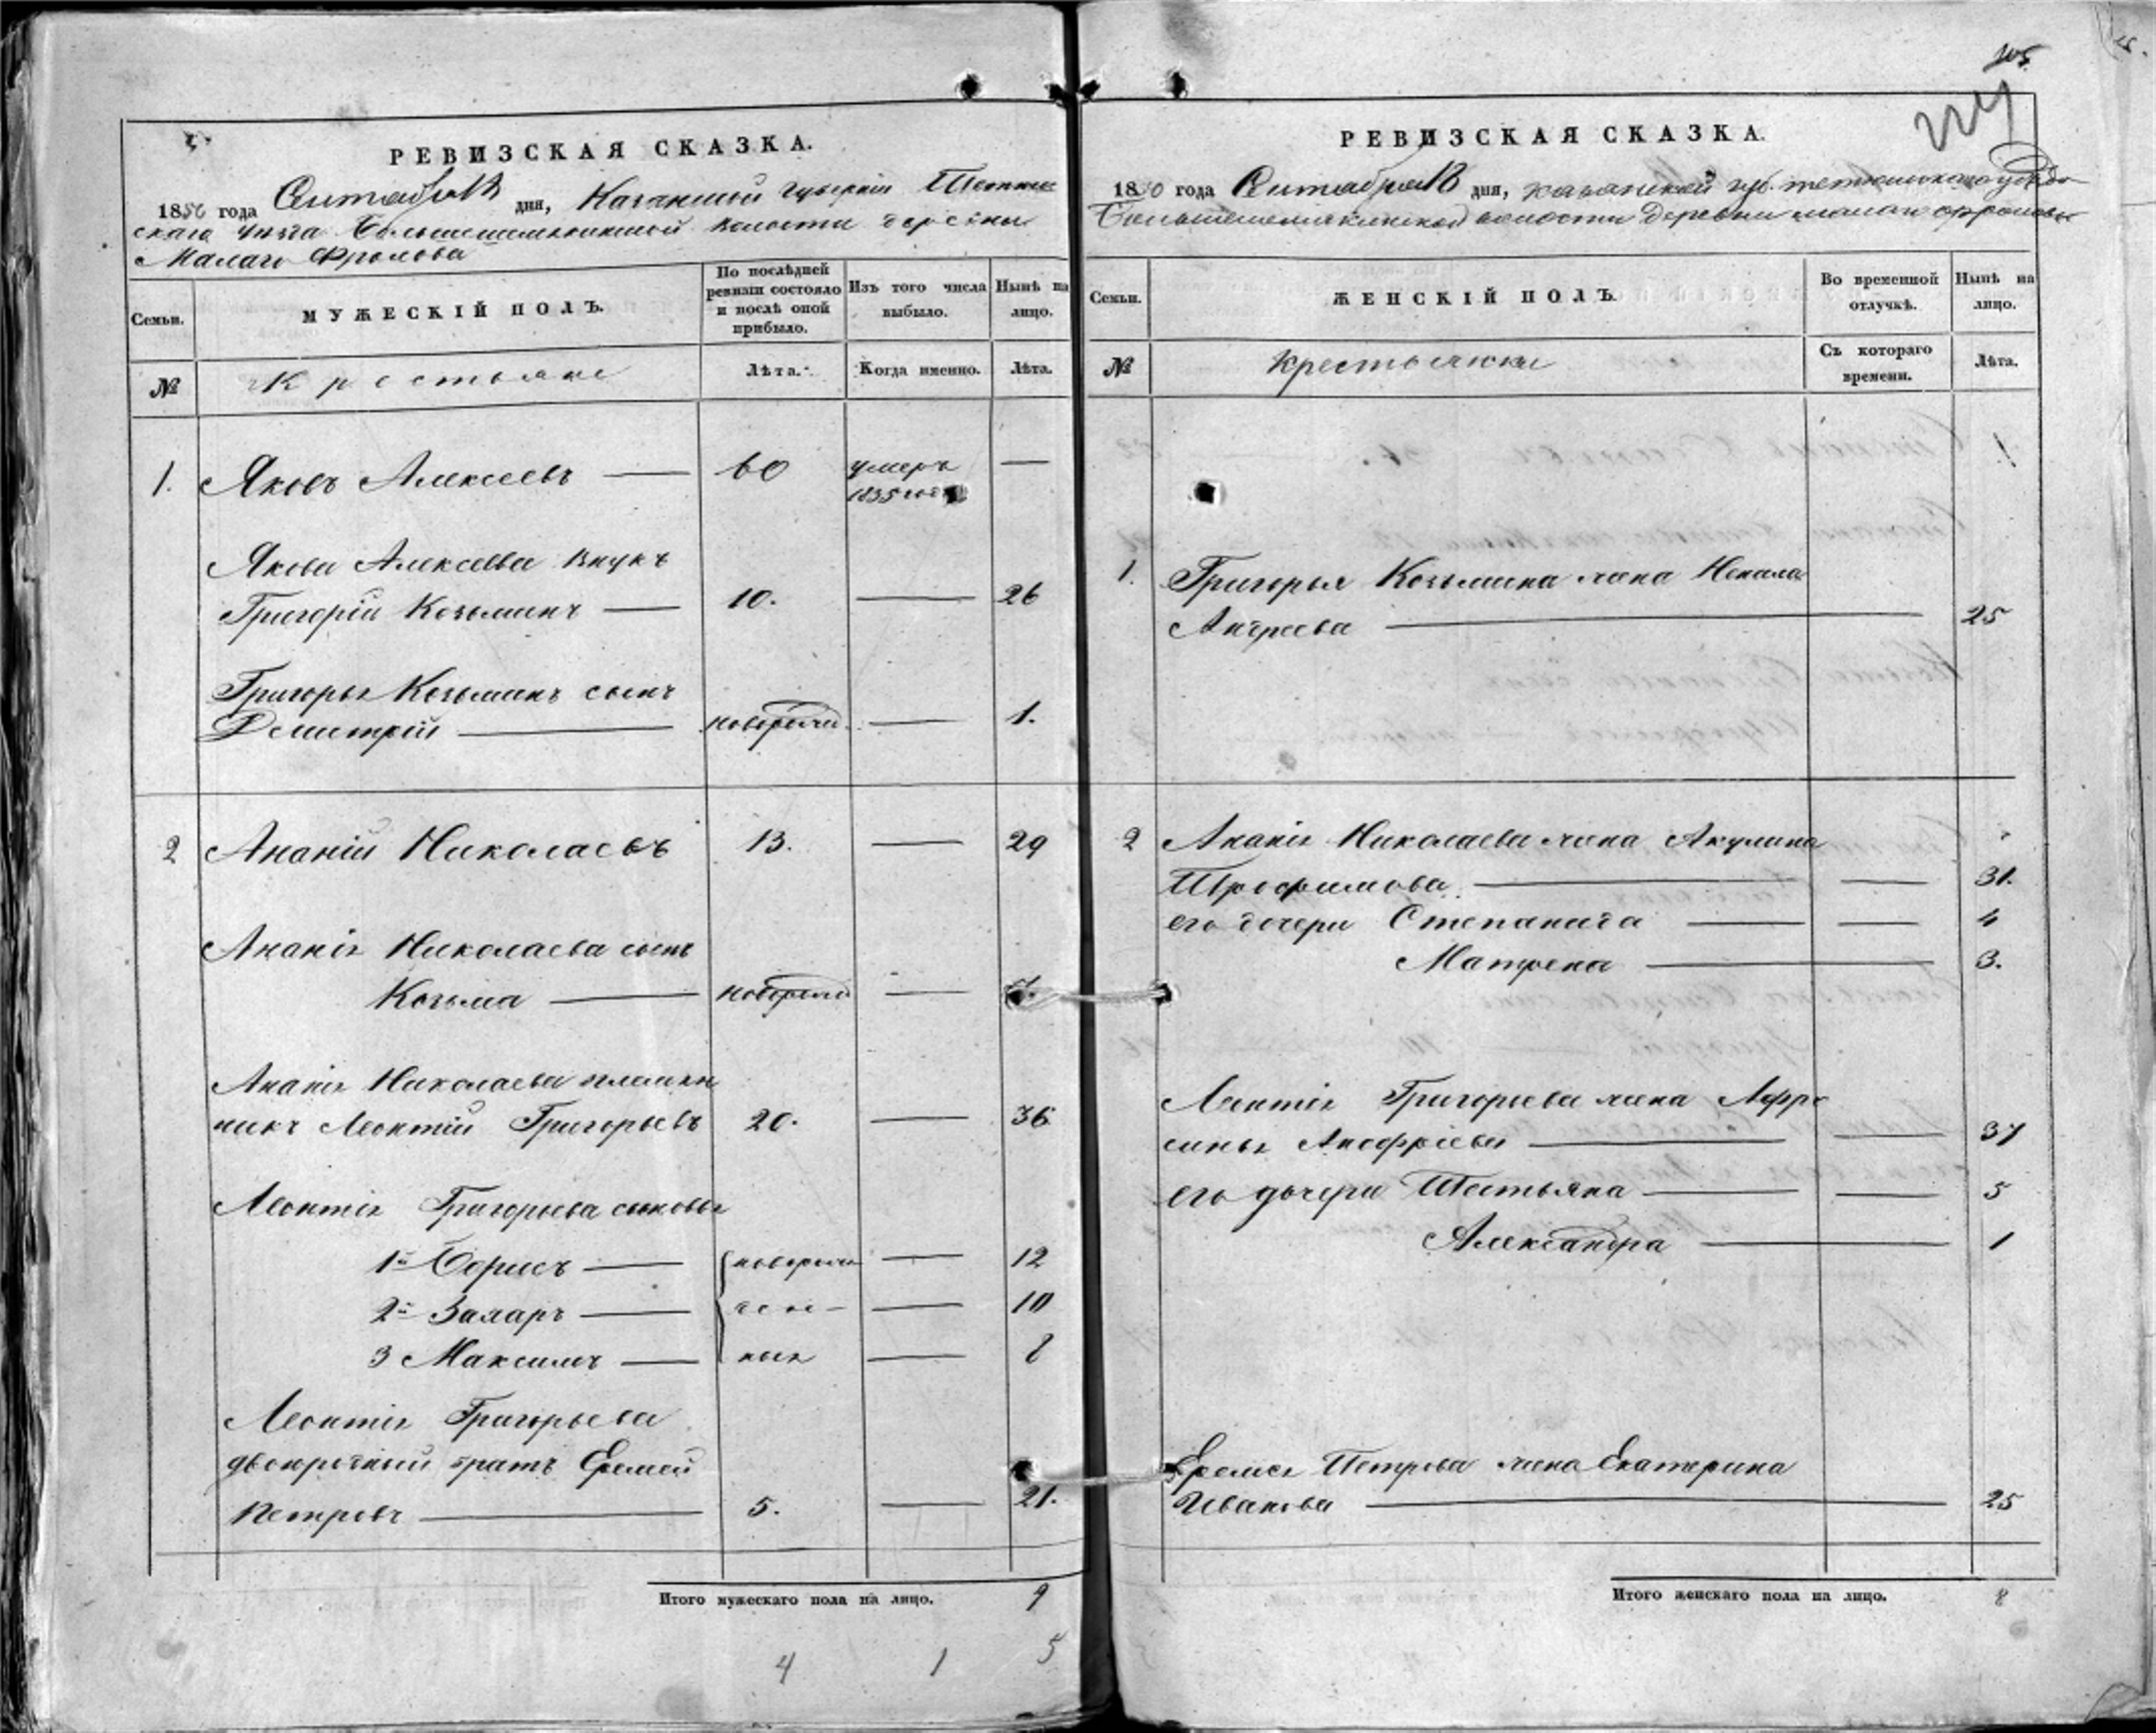 РЕВИЗСКАЯ СКАЗКА.
1850 года Сентября 18 дня, Казанской губернии Тетюш
скаго уѣзда Большешемякинской волости деревни
Малаго Фролова
Семьи.
МУЖЕСКІЙ ПОЛЪ.
По послѣдней ревизіи состояло и послѣ оной прибыло.
Изъ того числа выбыло.
Нынѣ на лицо.
№
Крестьяне
Лѣта.
Когда именно.
Лѣта.
1. Яковъ Алексеевъ — 60 умеръ —
1835 года
Якова Алексеева внукъ
Григорій Козьминъ — 10. — 26
Григорья Козьминъ сынъ
Дмитрій — новорожд. — 1.
2 Ананій Николаевъ 13. — 29
Ананія Николаева сынъ
Козьма — новорожд —
Ананія Николаева племян
никъ Леонтій Григорьевъ 20. — 36
Леонтія Григорьева сыновья
1й Борисъ — новорож — 12
2й Захаръ — ден — 10
3 Максимъ — ныя — 8
Леонтія Григорьева
двоюродный братъ Еремей
Петровъ — 5. — 21.
Итого мужескаго пола на лицо. 9
4 1 5
105
РЕВИЗСКАЯ СКАЗКА.
1850 года Сентября 18 дня, Казанской губ. тетюшскаго уѣзда
Большешемякинской волости деревни малаго фролова
Семьи.
ЖЕНСКІЙ ПОЛЪ.
Во временной отлучкѣ.
Нынѣ на лицо.
№
Крестьянки
Съ котораго времени.
Лѣта.
1. Григорья Козьмина жена
Андреева — 25
2 Ананія Николаева жена Акулина
Трофимова — — 31.
его дочери Степанида — — 4
Матрена — 3.
Леонтія Григорьева жена Афро
синья — — 37
его дочери Татьяна — — 5
Александра — 1
Еремея Петрова жена Екатерина
Иванова — 25
Итого женскаго пола на лицо. 8